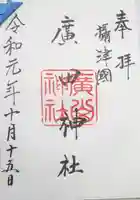 奉拝
攝津國
廣田神社
廣田神社
令和元年十月十五日